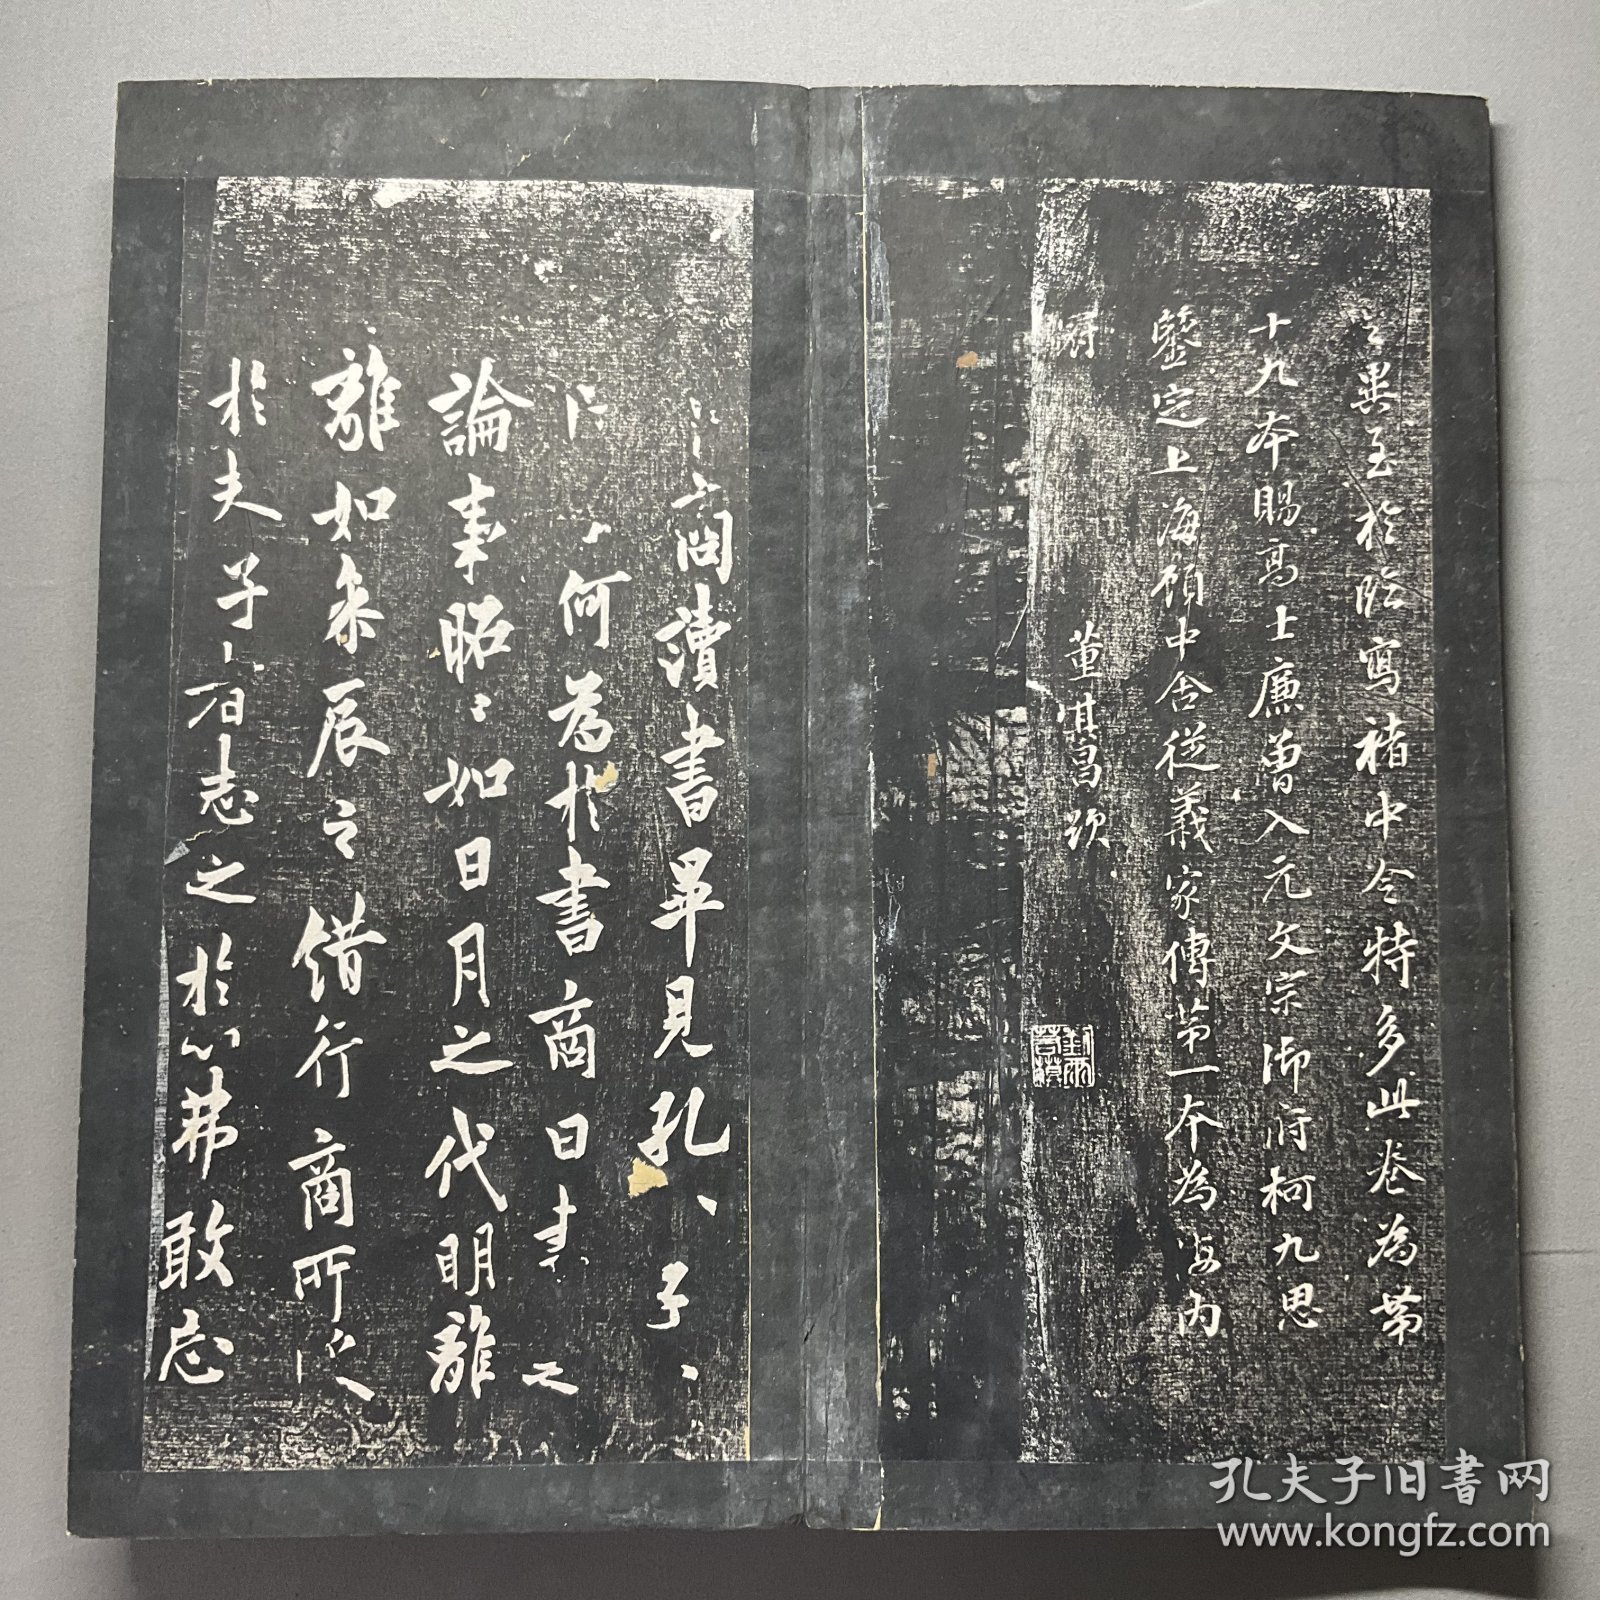 之異至於臨寫褚中令特多此卷為第
十九本賜高士廉曾入元文宗御府柯九思
鑒定上海顧中舍從義家傳第一本為海内
冠
董其昌題
商讀書畢見孔子子
何為於書商曰書之
論事昭昭如日月之代明離
離如參辰之錯行商所受
於夫子者志之於心弗敢忘
孔夫子旧書网
www.kongfz.com